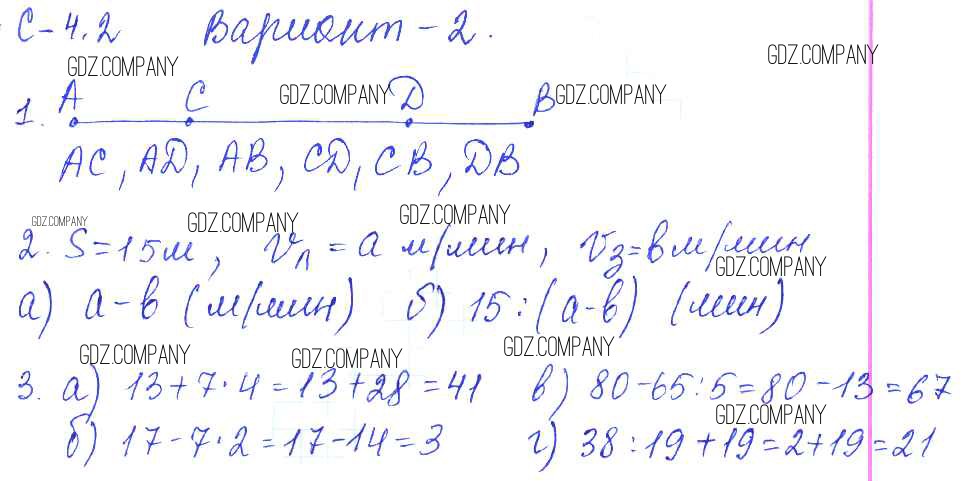 С-4.2 Вариант-2.
GDZ.COMPANY GDZ.COMPANY
A C GDZ.COMPANY D B GDZ.COMPANY
1.
AC, AD, AB, CD, CB, DB
GDZ.COMPANY GDZ.COMPANY GDZ.COMPANY
2. S=15м, Vл = a м/мин, Vз=в м/мин
GDZ.COMPANY
а) a-в (м/мин) б) 15:(a-в) (мин)
GDZ.COMPANY GDZ.COMPANY GDZ.COMPANY
3. а) 13+7·4=13+28=41 в) 80-65:5=80-13=67
GDZ.COMPANY
б) 17-7·2=17-14=3 г) 38:19+19=2+19=21